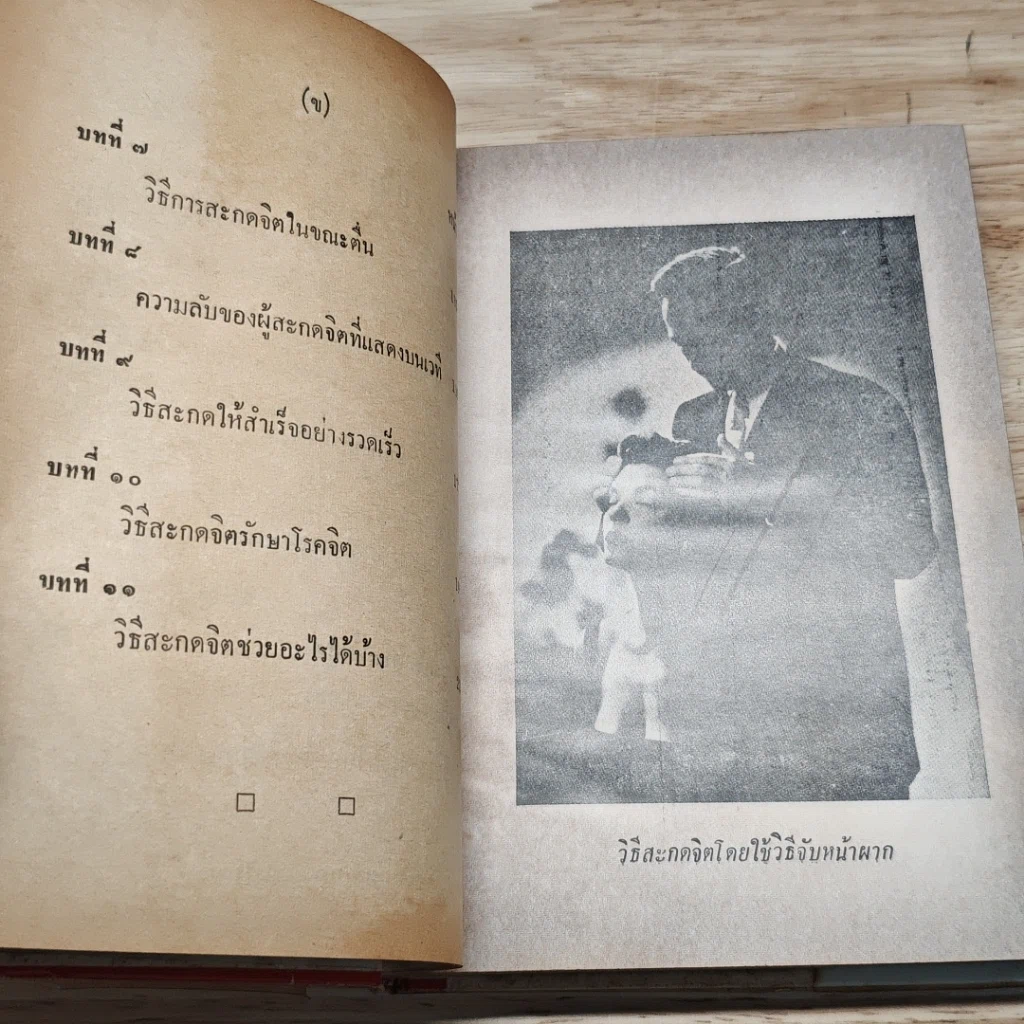 (ข)
บทที่ ๗
วิธีการสะกดจิตในขณะตื่น
บทที่ ๘
ความลับของผู้สะกดจิตที่แสดงบนเวที
บทที่ ๙
วิธีสะกดให้สำเร็จอย่างรวดเร็ว
บทที่ ๑๐
วิธีสะกดจิตรักษาโรคจิต
บทที่ ๑๑
วิธีสะกดจิตช่วยอะไรได้บ้าง
วิธีสะกดจิตโดยใช้วิธีจับหน้าผาก